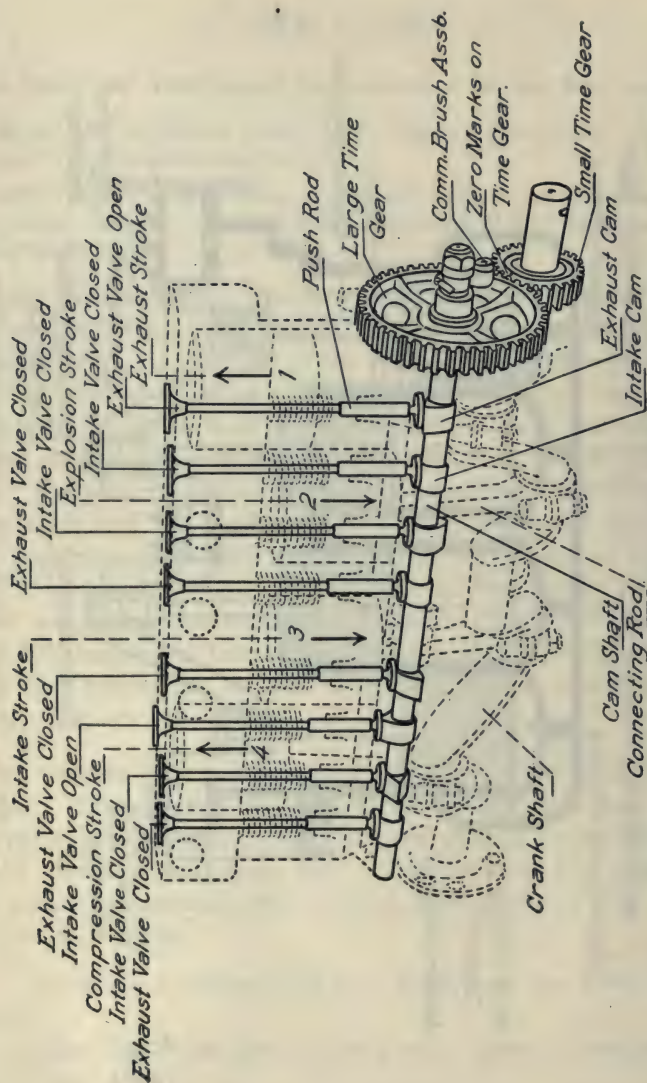 Exhaust Valve Closed
Intake Valve Closed
Explosion Stroke
Intake Valve Closed
Exhaust Valve Open
Exhaust Stroke
Intake Stroke
Exhaust Valve Closed
Intake Valve Open
Compression Stroke
Intake Valve Closed
Exhaust Valve Closed
Push Rod
Large Time
Gear
Comm. Brush Assb.
Zero Marks on
Time Gear.
Small Time Gear
1
2
3
4
Exhaust Cam
Intake Cam
Cam Shaft
Connecting Rod
Crank Shaft